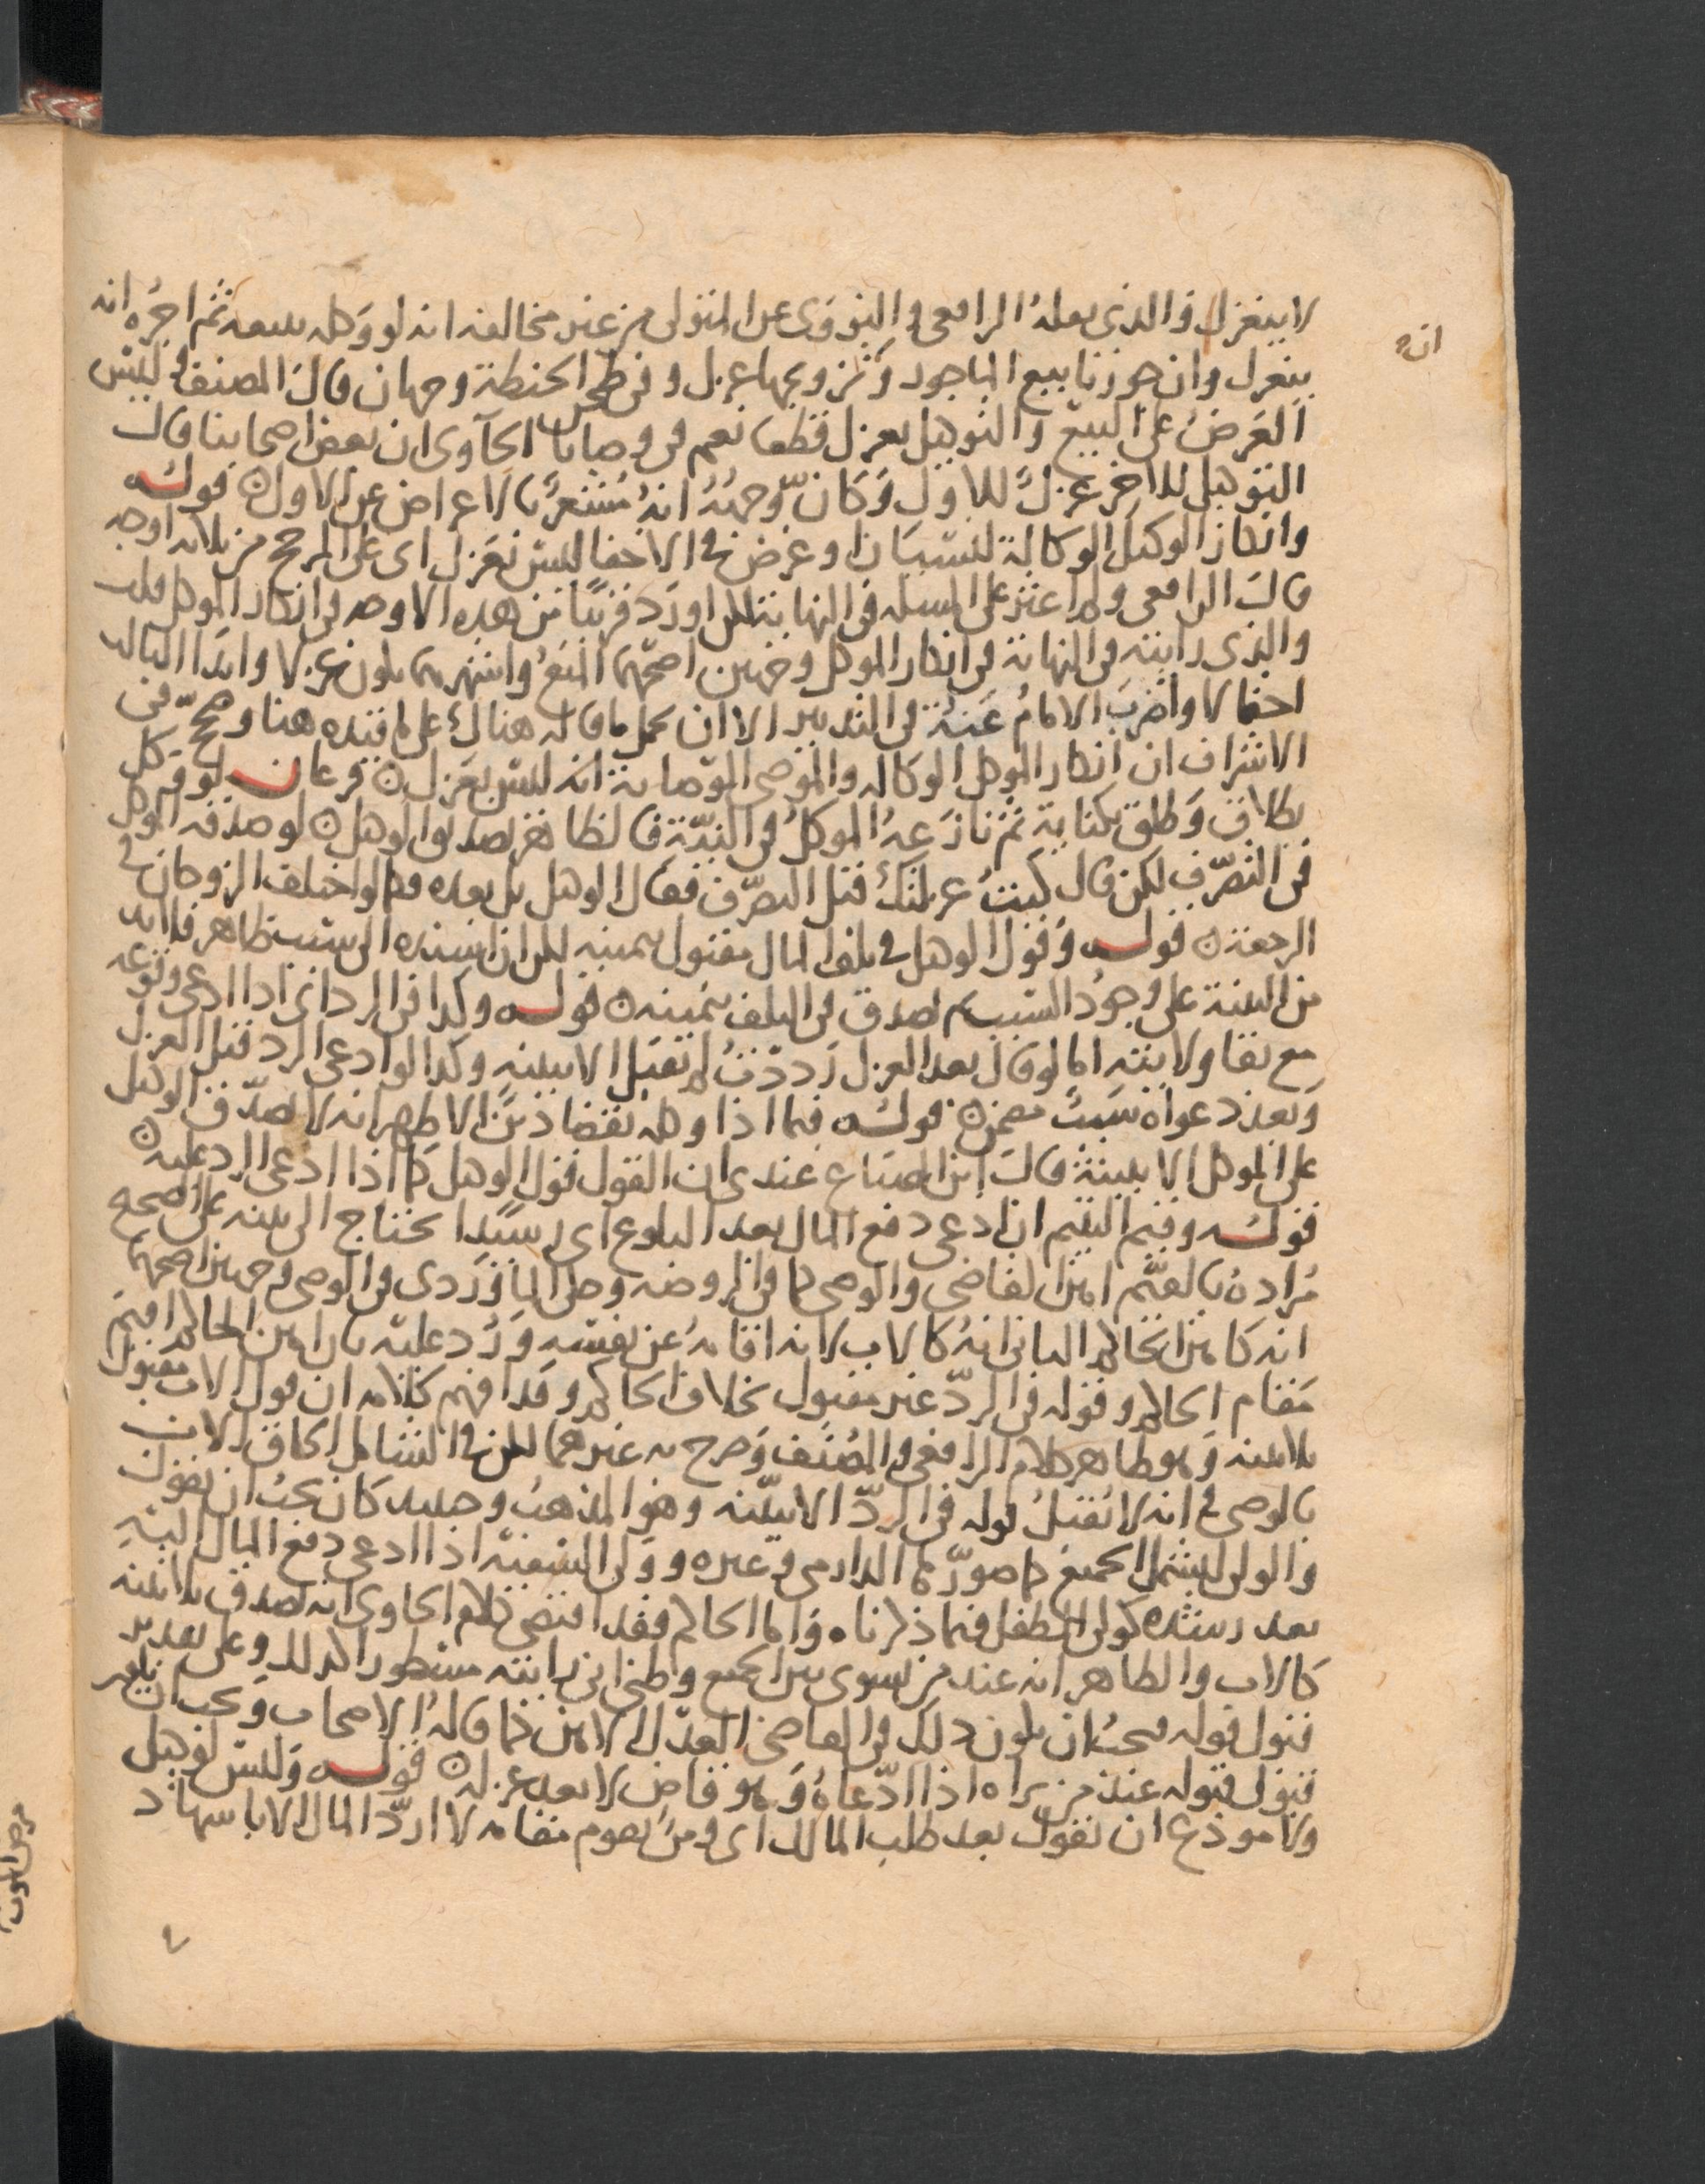 لا ينعزل والذي نقله الرافعي والنووي عن المتولي من غير مخالفة انه لو وكله ببيعه ثم اجره انه
ينعزل وان جوزنا بيع الماجور وتزويجها عزل وفي طحن الحنطة وجهان قال المصنف وليس
العرض على البيع والتوكيل بعزل قطعا نعم في وصايا الحاوي ان بعض اصحابنا قال
التوكيل للاخر عزل للاول وكان وجهه انه مشعر بالاعراض عن الاول قوله
وانكار الوكيل الوكالة لنسيان او غرض في الاخفا ليس بعزل اي على المرجح من ثلاثة اوجه
قال الرافعي ولم اعثر على المسله في النهاية لكن اورد قريبا من هذه الاوجه في انكار الموكل قلت
والذي رايته في النهاية في انكار الموكل وجهين اصحهما المنع واشهرهما يكون عزلا وابدا الثالث
احتمالا واضرب الامام عنه في التدبير الا ان يحمل ما قاله هنالك على ما قيده هنا وصحح في
الاشراف ان انكار الموكل الوكالة والموصي الوصاية انه ليس بعزل فرعان لو وكل
بطلاق وطلق بكناية ثم نازعه الموكل في النية فالظاهر تصديق الوكيل لو صدقه الموكل
في التصرف لكن قال كنت عزلتك قبل التصرف فقال الوكيل بل بعده فكما لو اختلف الزوجان في
الرجعة قوله وقول الوكيل في تلف المال مقبول بيمينه لكن ان اسنده الى سبب ظاهر فلا بد
من البينة على وجود السبب ثم يصدق في التلف بيمينه قوله وكذا في الرد اي اذا ادعى وقوعه
مع بقا ولايته اما لو قال بعد العزل رددت لم تقبل الا ببينة وكذا لو ادعى الرد قبل العزل
وبعد دعواه بسبب مضمن قوله فيما اذا وكله بقضا دين الاظهر انه لا يصدق الوكيل
على الموكل الا ببينة قال ابن الصباغ عندي ان القول قول الوكيل كما اذا ادعى الرد عليه
قوله وقيم اليتيم ان ادعى دفع المال بعد البلوغ اي رشيدا يحتاج الى بينة على الصحيح
مراده بالقيم امين القاضي والوصي كما في الروضة وحكى الماوردي في الوصي وجهين اصحهما
انه كامين الحاكم الثاني انه كالاب لانه اقامه عن نفسه ورد عليه بان امين الحاكم اقيم
مقام الحاكم وقوله في الرد غير مقبول بخلاف الحاكم وقد افهم كلامه ان قول الاب مقبول
بلا بينة وهو ظاهر كلام الرافعي والمصنف وصرح به غيرهما لكن في الشامل الحاق الاب
بالوصي في انه لا تقبل قوله في الرد الا ببينة وهو المذهب وحينئذ كان يجب ان يقول
والولي ليشمل الجميع كما صورها الدارمي وغيره وولي السفيه اذا ادعى دفع المال اليه
بعد رشده كولي الطفل فيما ذكرناه واما الحاكم فقد اقتضى كلام الحاوي انه يصدق بلا بينة
كالاب والظاهر انه عند من يسوي بين الجميع وظني اني رايته مسطورا كذلك وعلى تقدير
قبول قوله يجب ان يكون ذلك في القاضي العدل الامين كما قاله الاصحاب ويجب ان
قبول قوله عند من يراه اذا ادعاه وهو قاض لا بعد عزله قوله وليس لوكيل
ولا مودع ان يقول بعد طلب المالك اي ومن يقوم مقامه لا ارد المال الا باشهاد
انه
مرض الموت